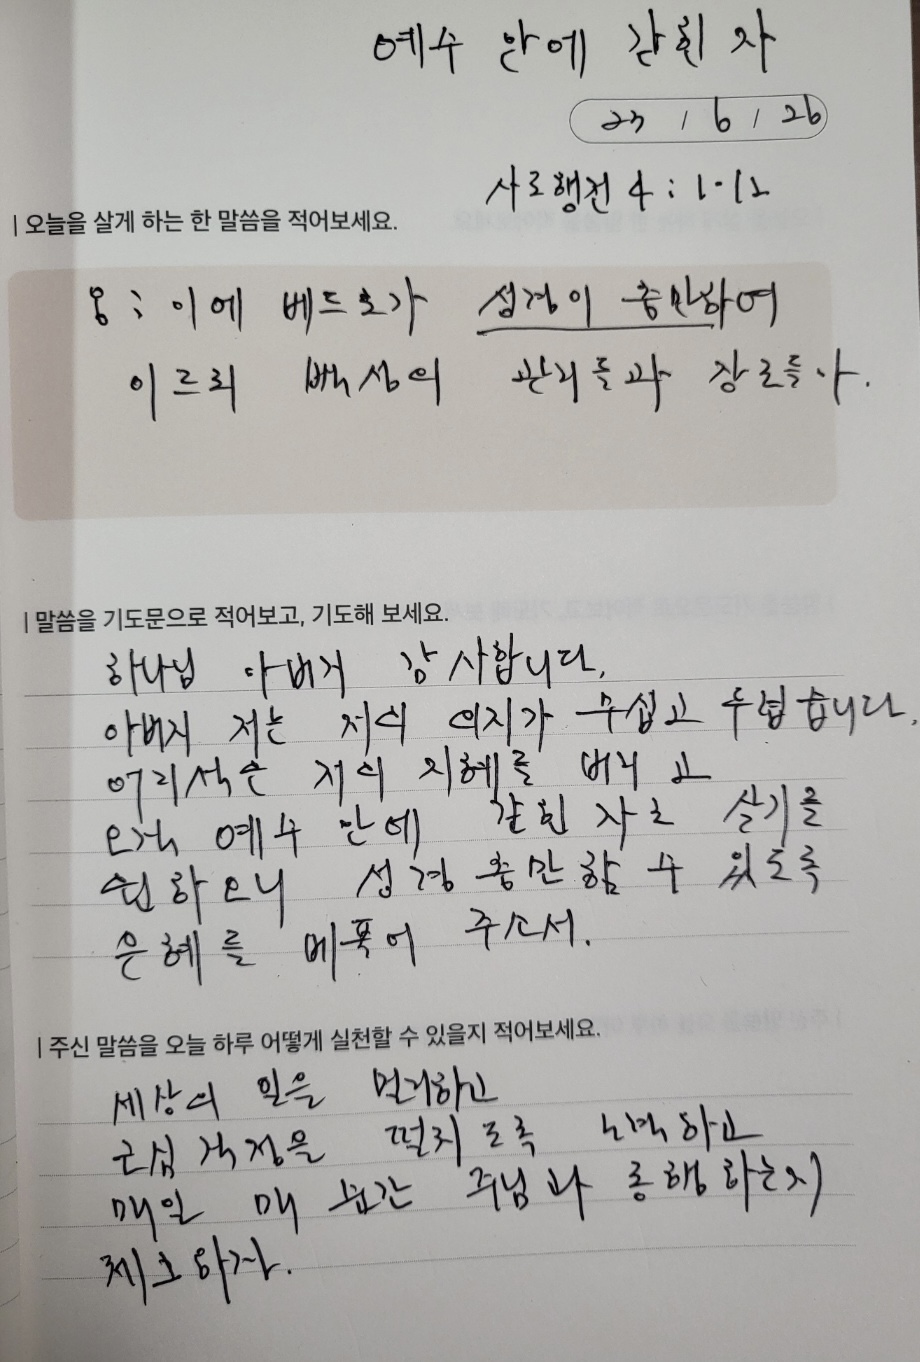 예수 안에 갇힌 자
23 / 6 / 26
사도행전 4 : 1-12
오늘을 살게 하는 한 말씀을 적어보세요.
8 ; 이에 베드로가 성령이 충만하여
이르되 백성의 관리들과 장로들아.
말씀을 기도문으로 적어보고, 기도해 보세요.
하나님 아버지 감사합니다.
아버지 저는 저의 의지가 무섭고 두렵습니다.
어리석은 저의 지혜를 버리고
오직 예수 안에 갇힌 자로 살기를
원하오니 성령 충만함 수 있도록
은혜를 베푹어 주소서.
주신 말씀을 오늘 하루 어떻게 실천할 수 있을지 적어보세요.
세상의 일을 멀리하고
근심 걱정을 떨치도록 노력하고
매일 매 순간 주님과 동행하는지
체크하자.